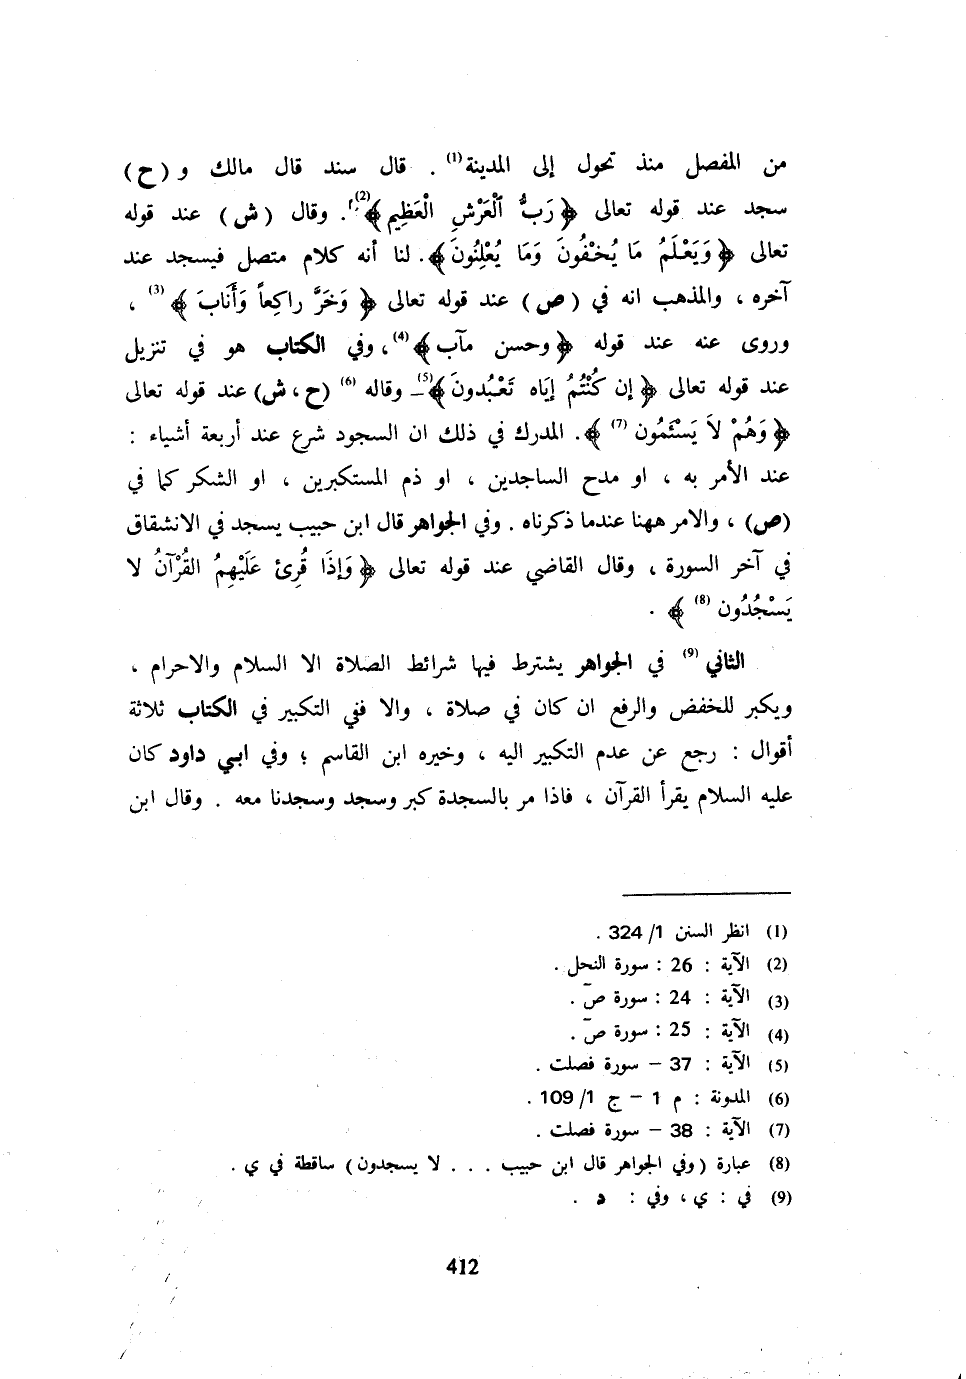 من المفصل منذ تحول إلى المدينة(1) . قال سند قال مالك و (ح)
سجد عند قوله تعالى ﴿رَبُّ ٱلْعَرْشِ الْعَظِيمِ﴾(2). وقال (ش) عند قوله
تعالى ﴿وَيَعْلَمُ مَا يُخْفُونَ وَمَا يُعْلِنُونَ﴾. لنا أنه كلام متصل فيسجد عند
آخره ، والمذهب انه في (ص) عند قوله تعالى ﴿وَخَرَّ راكِعاً وَأَنَابَ﴾(3) ،
وروى عنه عند قوله ﴿وحسن مآب﴾(4)، وفي الكتاب هو في تنزيل
عند قوله تعالى ﴿إن كُنْتُمُ إيَاه تَعْبُدونَ﴾(5)ـ وقاله (6) (ح ، ش) عند قوله تعالى
﴿وَهُمْ لاَ يَسْئَمُون (7) ﴾. المدرك في ذلك ان السجود شرع عند أربعة أشياء :
عند الأمر به ، او مدح الساجدين ، او ذم المستكبرين ، او الشكر كما في
(ص) ، والامر ههنا عندما ذكرناه . وفي الجواهر قال ابن حبيب يسجد في الانشقاق
في آخر السورة ، وقال القاضي عند قوله تعالى ﴿وَإذَا قُرِئ عَلَيْهِمُ القُرْآنُ لا
يَسْجُدُون (8) ﴾ .
الثاني (9) في الجواهر يشترط فيها شرائط الصلاة الا السلام والاحرام ،
ويكبر للخفض والرفع ان كان في صلاة ، والا ففي التكبير في الكتاب ثلاثة
أقوال : رجع عن عدم التكبير اليه ، وخيره ابن القاسم ؛ وفي ابي داود كان
عليه السلام يقرأ القرآن ، فاذا مر بالسجدة كبر وسجد وسجدنا معه . وقال ابن
(1) انظر السنن 1/ 324 .
(2) الآية : 26 : سورة النحل .
(3) الآية : 24 : سورة صۤ .
(4) الآية : 25 : سورة صۤ .
(5) الآية : 37 – سورة فصلت .
(6) المدونة : م 1 – ج 1/ 109 .
(7) الآية : 38 – سورة فصلت .
(8) عبارة (وفي الجواهر قال ابن حبيب . . . لا يسجدون) ساقطة في ي .
(9) في : ي ، وفي : د .
412